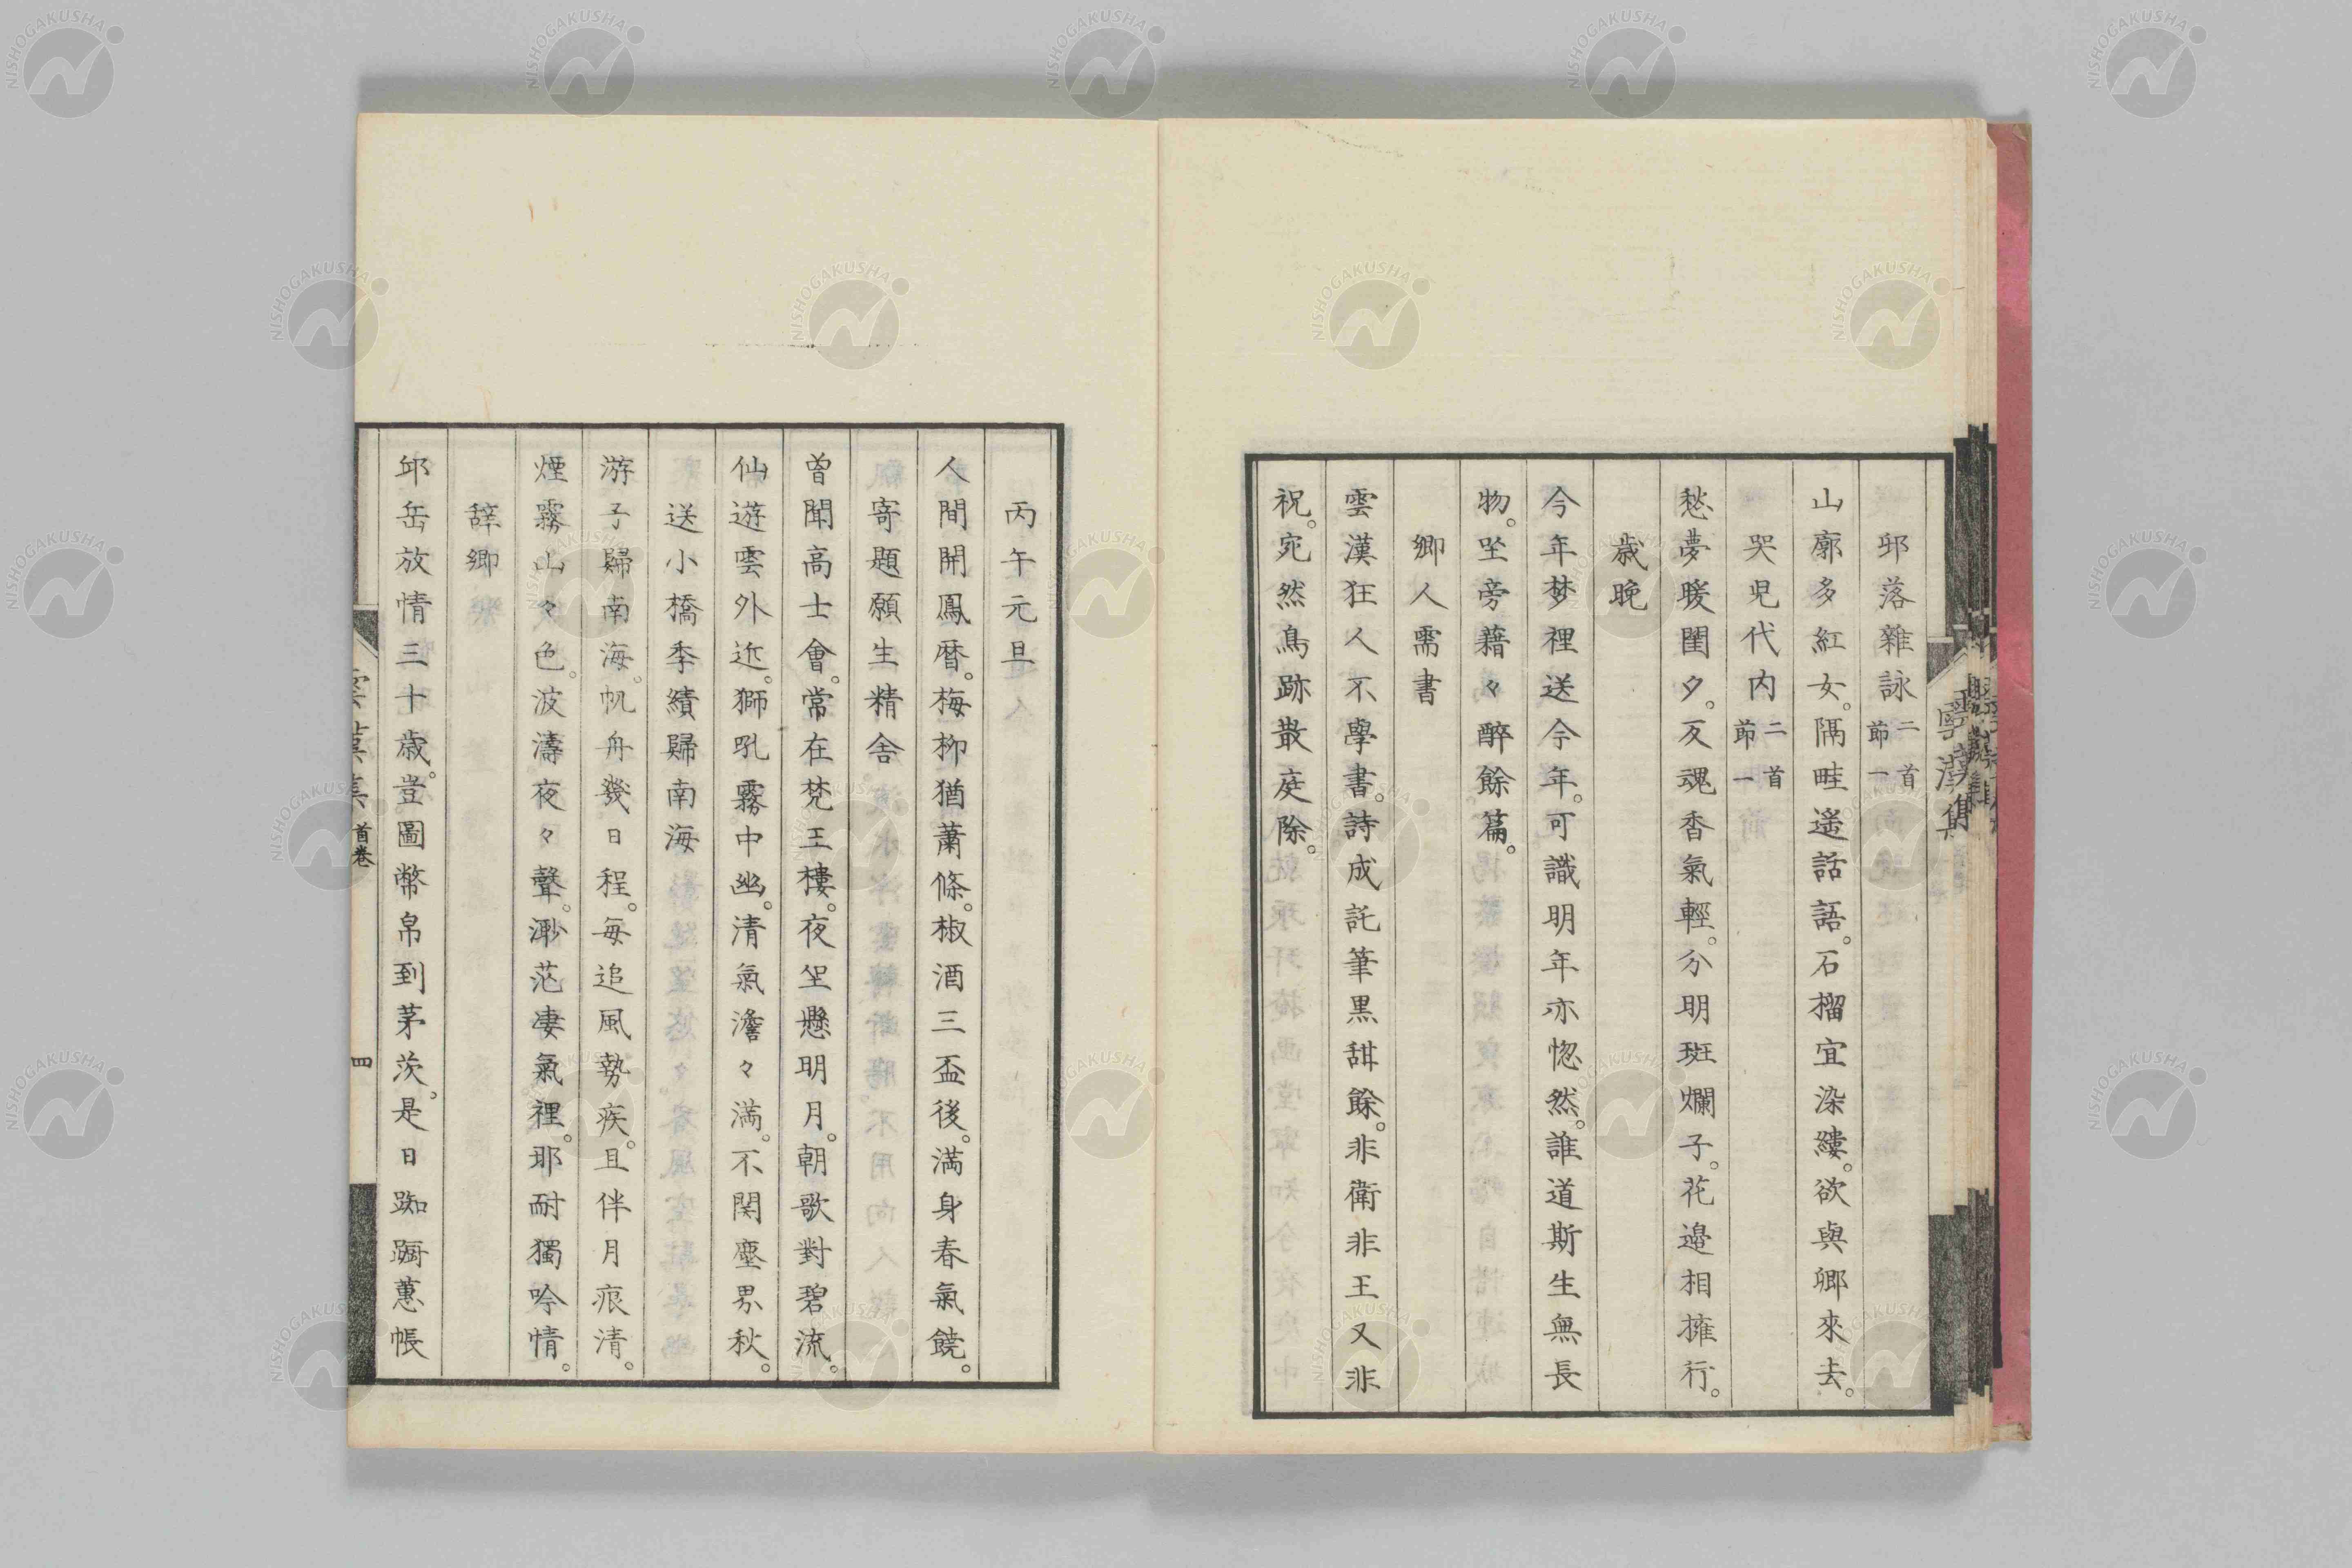 邱落雜詠二首節一
山廓多紅女。隔畦遥話語。石榴宜染縷。欲與卿來去。
哭児代内二首節一
愁夢暖閨夕。反魂香氣輕。分明斑爛子。花邉相擁行。
歳晩
今年梦裡送今年。可識明年亦惚然。誰道斯生無長
物。坐旁藉々醉餘篇。
郷人需書
雲漢狂人不學書。詩成託筆黒甜餘。非衛非王又非
祝。宛然鳥跡散庭除。
雲漢集
丙午元旦
人間開鳳暦。梅柳猶蕭條。椒酒三盃後。満身春氣饒。
寄題願生精舎
曽聞高士會。常在梵王樓。夜坐懸明月。朝歌對碧流。
仙遊雲外近。獅吼霧中幽。清氣澹々満。不関塵界秋。
送小橋季績歸南海
游子歸南海。帆舟幾日程。毎追風勢疾。且伴月痕清。
煙霧山々色。波濤夜々聲。渺茫凄氣裡。耶耐獨吟情。
辞郷
邱岳放情三十歳。豈圖幣帛到茅茨。是日踟蹰蕙帳
雲漢集 首巻 四
NISHOGAKUSHA